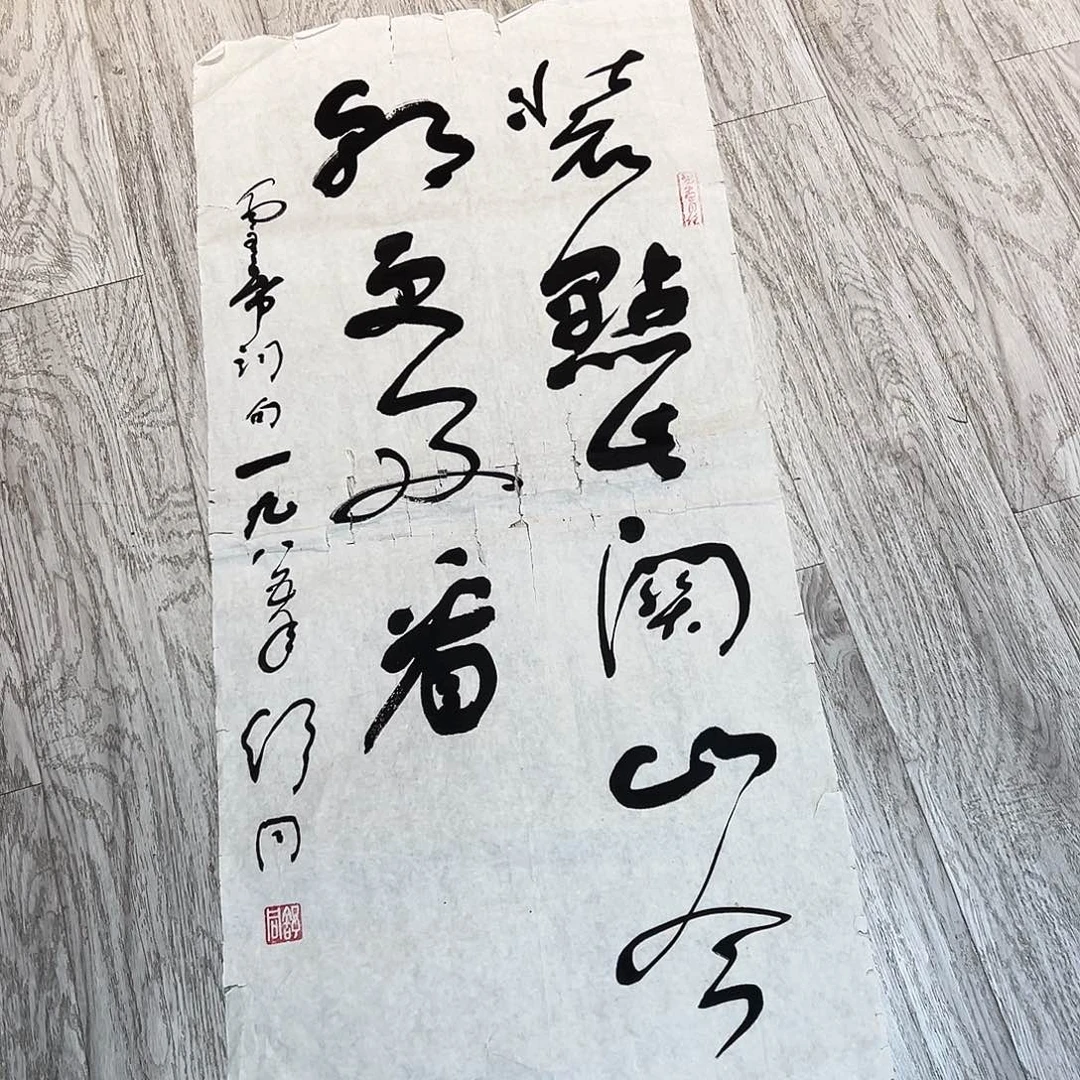 裝點此關山今
朝更好看
毛主席詞句一九八五年舒同
舒同